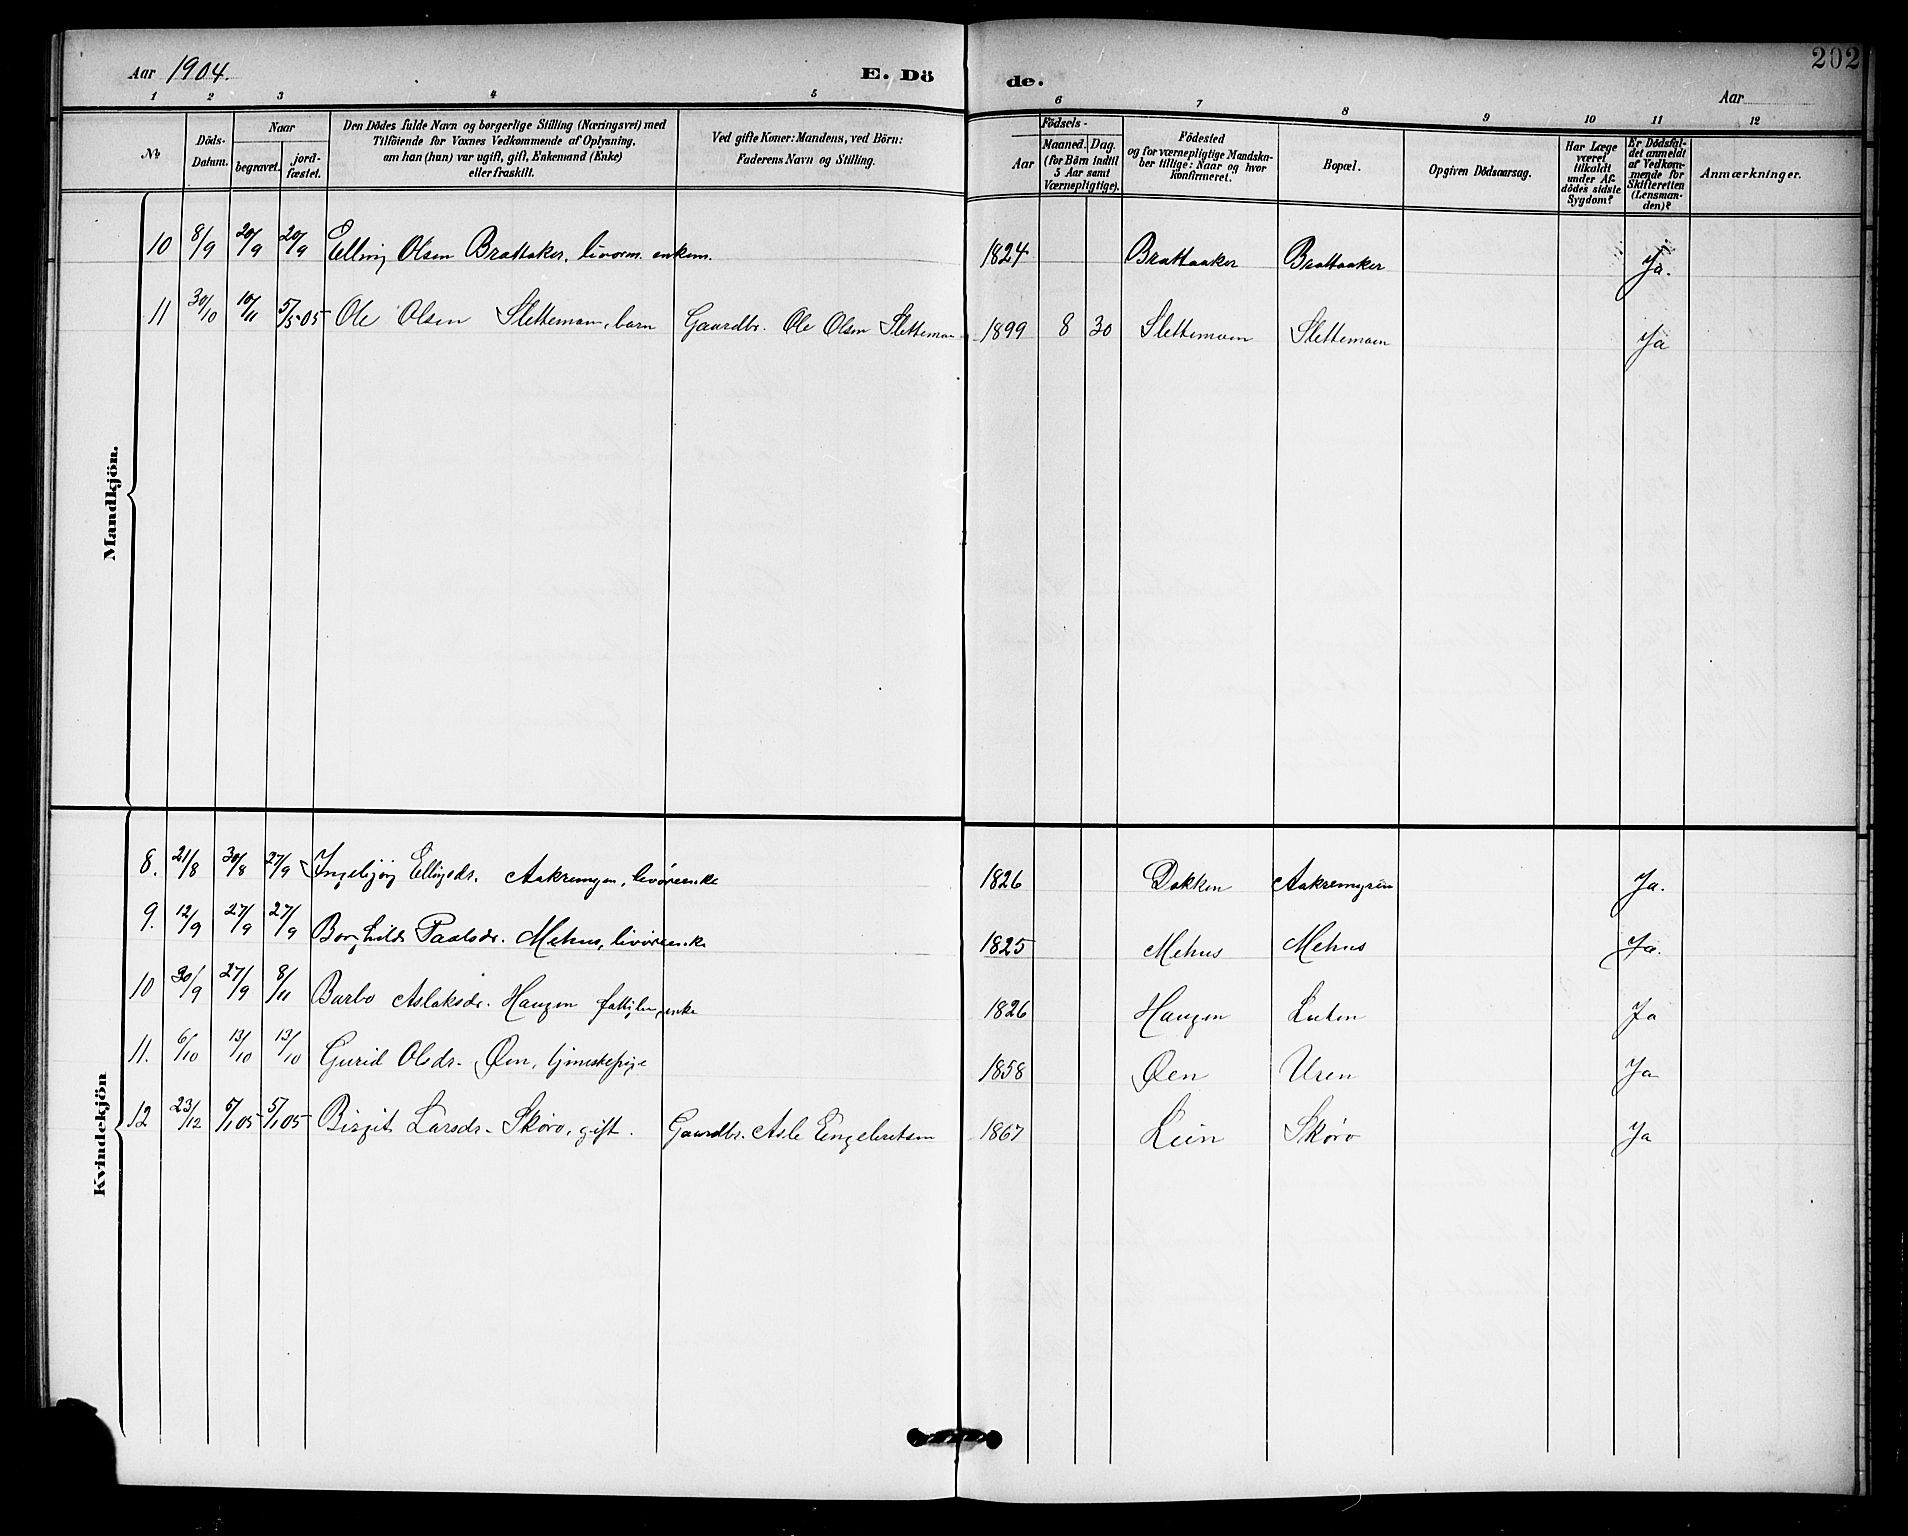 202
Aar 1904.
E. Dö
de.
Aar
1 2 3 4 5 6 7 8 9 10 11 12
№
Döds-Datum.
Naar
begravet.
jord-fæstet.
Den Dödes fulde Navn og borgerlige Stilling (Næringsvei) med
Tilföiende for Voxnes Vedkommende af Oplysning,
om han (hun) var ugift, gift, Enkemand (Enke)
eller fraskilt.
Ved gifte Koner: Mandens, ved Börn:
Faderens Navn og Stilling.
Födsels-
Aar
Maaned. Dag.
(for Börn indtil
5 Aar samt
Værnepligtige).
Födested
og for værnepligtige Mandska-
ber tillige: Naar og hvor
konfirmeret.
Bopæl.
Opgiven Dödsaarsag.
Har Læge
været
tilkaldt
under Af-
dödes sidste
Sygdom?
Er Dödsfal-
det anmeldt
af Vedkom-
mende for
Skifteretten
(Lensman-
den)?
Anmærkninger.
Mandkjön.
10 8/9 20/9 20/9 Elling Olsen Brattaker, livörm. enkem. 1824 Brattaaker Brattaaker Ja.
11 30/10 10/11 5/5 05 Ole Olsen Slettemoen, barn Gaardbr. Ole Olsen Slettemoen 1899 8 30 Slettemoen Slettemoen Ja
Kvindekjön
8. 21/8 30/8 27/9 Ingebjörg Ellingsdr. Aakremyren, livöreenke 1826 Dokken Aakremyren Ja.
9. 12/9 27/9 27/9 Borghild Paalsdr. Mehus, livöreenke 1825 Mehus Mehus Ja.
10 30/9 27/9 8/11 Barbo Aslaksdr. Haugen enke 1826 Haugen Ja
11. 6/10 13/10 13/10 Gurid Olsdr. Öen, tjenestepige 1858 Öen Uren Ja
12 23/12 5/1 05 5/1 05 Birgit Larsdr. Sköro, gift. Gaardbr. Asle Engebretsen 1867 Lein Sköro Ja